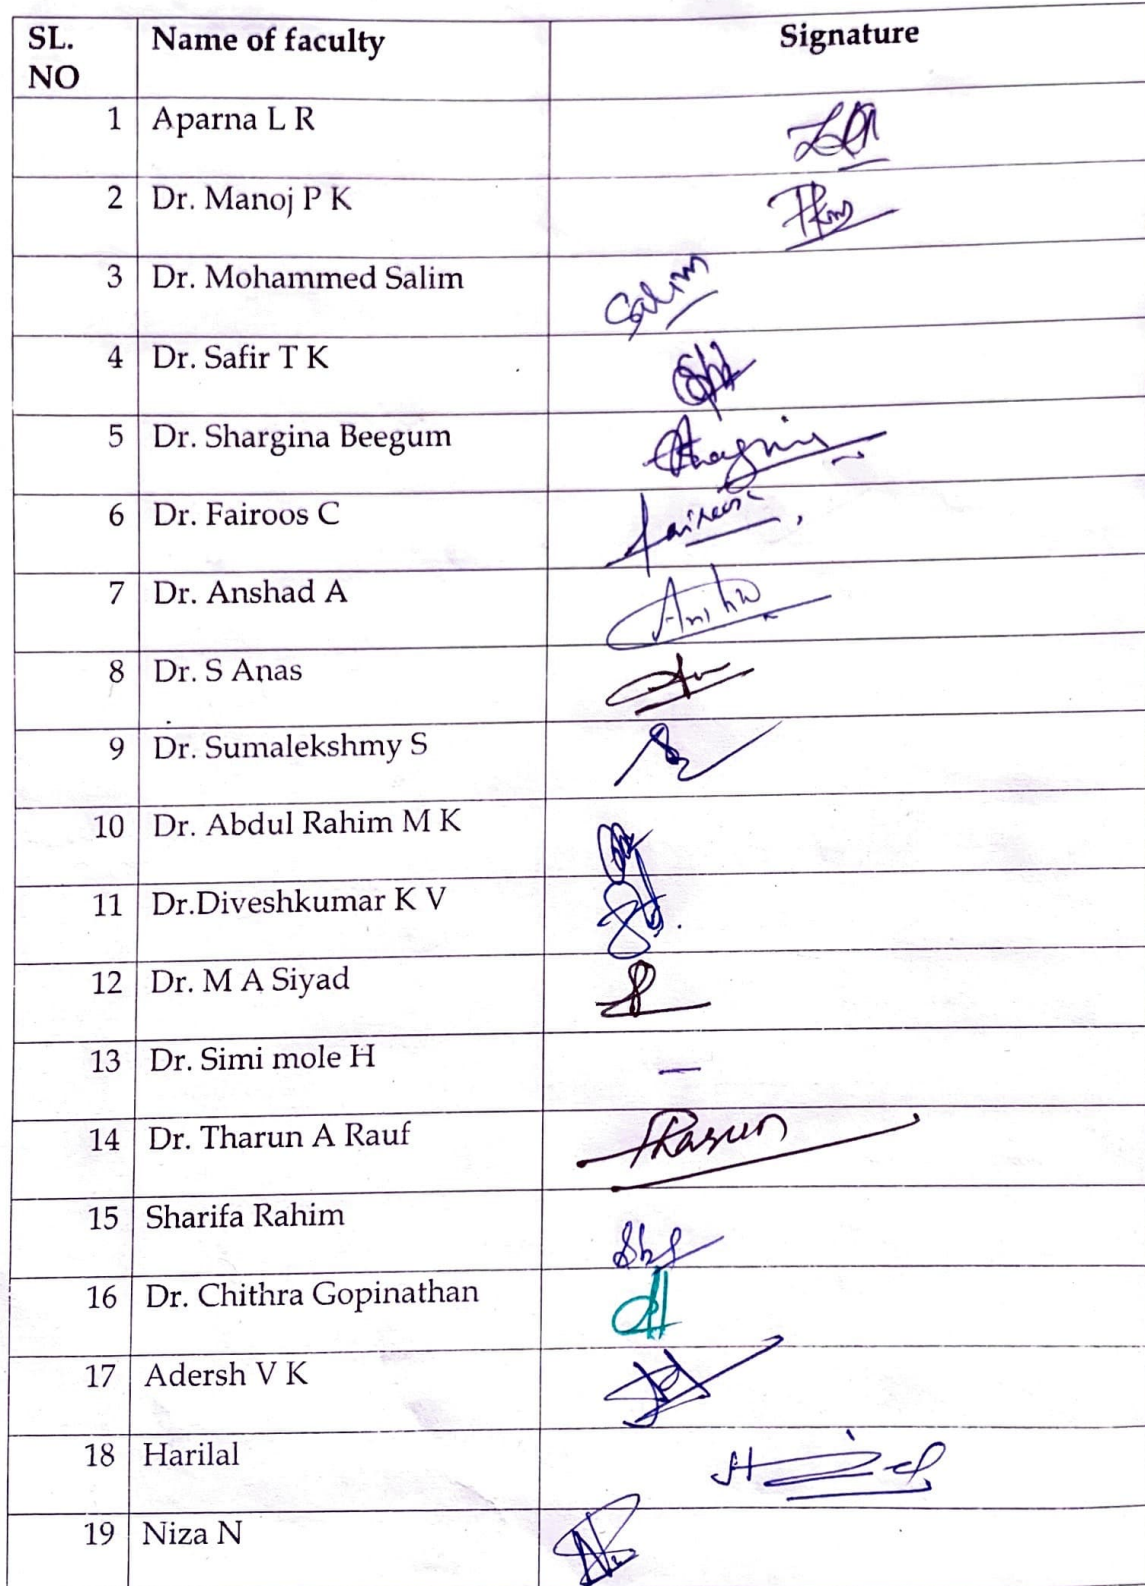 SL. NO Name of faculty Signature
1 Aparna L R
2 Dr. Manoj P K
3 Dr. Mohammed Salim Salim
4 Dr. Safir T K
5 Dr. Shargina Beegum
6 Dr. Fairoos C Fairoos
7 Dr. Anshad A
8 Dr. S Anas
9 Dr. Sumalekshmy S
10 Dr. Abdul Rahim M K
11 Dr.Diveshkumar K V
12 Dr. M A Siyad
13 Dr. Simi mole H –
14 Dr. Tharun A Rauf
15 Sharifa Rahim
16 Dr. Chithra Gopinathan
17 Adersh V K
18 Harilal
19 Niza N